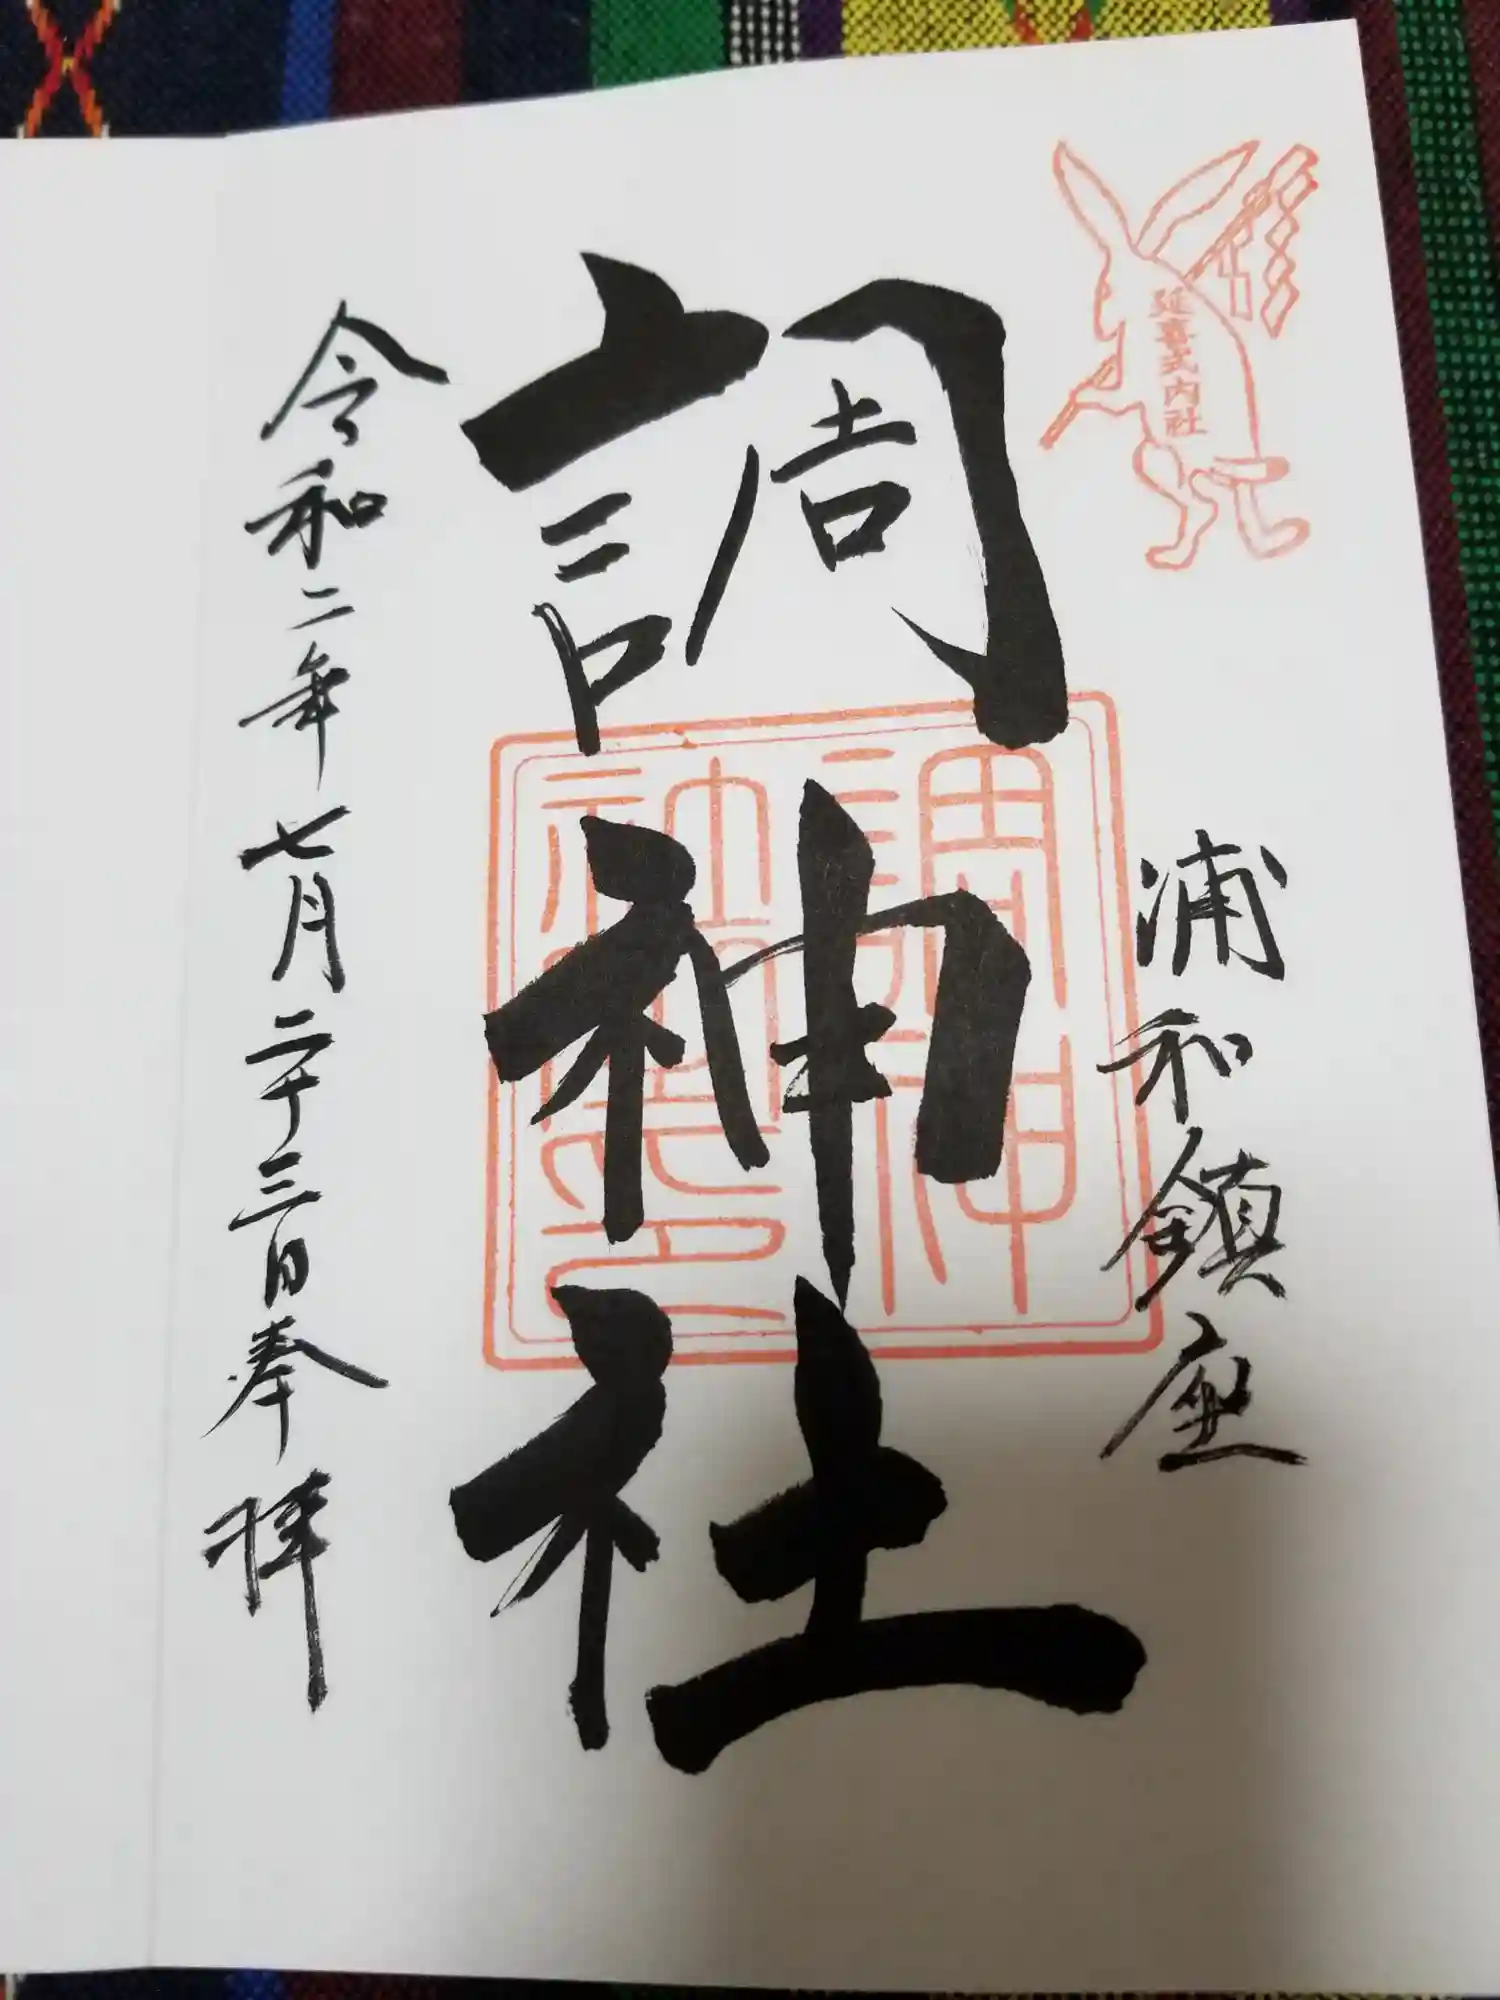 延喜式内社
浦和鎮座
調神社
調神
社之印
令和二年七月二十三日奉拝